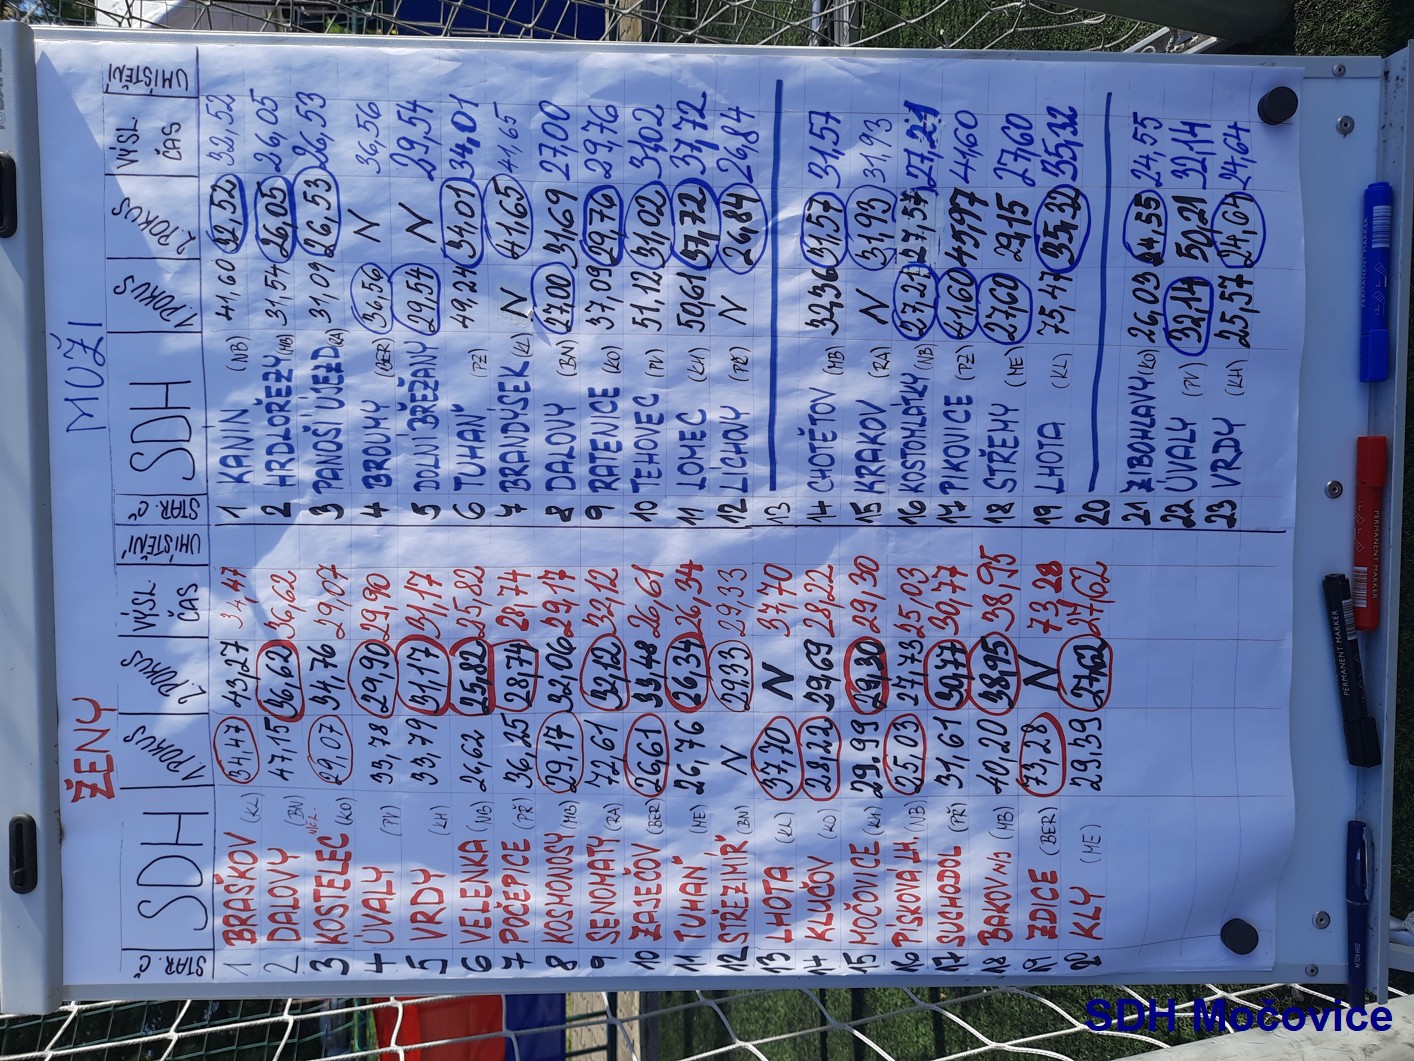 ŽENY MUŽI
STAR. Č. SDH 1. POKUS 2. POKUS VÝSL. ČAS UMÍSTĚNÍ STAR. Č. SDH 1. POKUS 2. POKUS VÝSL. ČAS UMÍSTĚNÍ
1 BRAŠKOV (KL) 34,47 43,27 34,47 1 KANÍN (NB) 41,60 32,52 32,52
2 DALOVY (BN) 47,15 36,62 36,62 2 HRDLOŘEZY (MB) 31,54 26,05 26,05
3 KOSTELEC (KO) 29,07 34,76 29,07 3 PANOŠÍ ÚJEZD (RA) 31,09 26,53 26,53
4 ÚVALY (PV) 33,78 29,90 29,90 4 BROUMY (BER) 36,56 N 36,56
5 VRDY (KH) 33,79 31,17 31,17 5 DOLNÍ BŘEŽANY 29,54 N 29,54
6 VELENKA (NB) 26,62 25,82 25,82 6 TUHAŇ (PZ) 49,24 34,01 34,01
7 POČEPICE (PŘ) 36,25 28,74 28,74 7 BRANDÝSEK (KL) N 41,65 41,65
8 KOSMONOSY (MB) 29,17 32,06 29,17 8 DALOVY (BN) 27,00 31,69 27,00
9 SENOMATY (RA) 72,61 32,12 32,12 9 RATENICE (KO) 37,09 29,76 29,76
10 ZAJEČOV (BER) 26,61 33,48 26,61 10 TEHOVEC (PV) 51,12 31,02 31,02
11 TUHAŇ (ME) 26,76 26,34 26,34 11 LOMEC (KH) 50,61 37,72 37,72
12 STŘEZIMÍŘ (BN) N 29,33 29,33 12 LICHOVY (PŘ) N 26,84 26,84
13 LHOTA (KL) 37,70 N 37,70 13
14 KLUČOV (KO) 28,22 29,69 28,22 14 CHOTĚTOV (MB) 32,36 31,57 31,57
15 MOČOVICE (KH) 29.99 29,30 29,30 15 KRAKOV (RA) N 31,93 31,93
16 PÍSKOVÁ LH. (NB) 25,03 27,73 25,03 16 KOSTOMLÁTKY (NB) 27,21 27,57 27,21
17 SUCHODOL (PŘ) 31,61 30,77 30,77 17 PIKOVICE (PZ) 41,60 45,97 41,60
18 BAKOV n/J (MB) 40,20 38,95 38,95 18 STŘEMY (ME) 27,60 29,15 27,60
19 ZDICE (BER) 73,28 N 73,28 19 LHOTA (KL) 75,47 35,32 35,32
20 KLY (ME) 29,39 27,62 27,62 20
21 ZIBOHLAVY (KO) 26,03 24,55 24,55
22 ÚVALY (PV) 32,14 50,21 32,14
23 VRDY (KH) 25,57 24,64 24,64
PERMANENT MARKER
PERMANENT MARKER
SDH Močovice